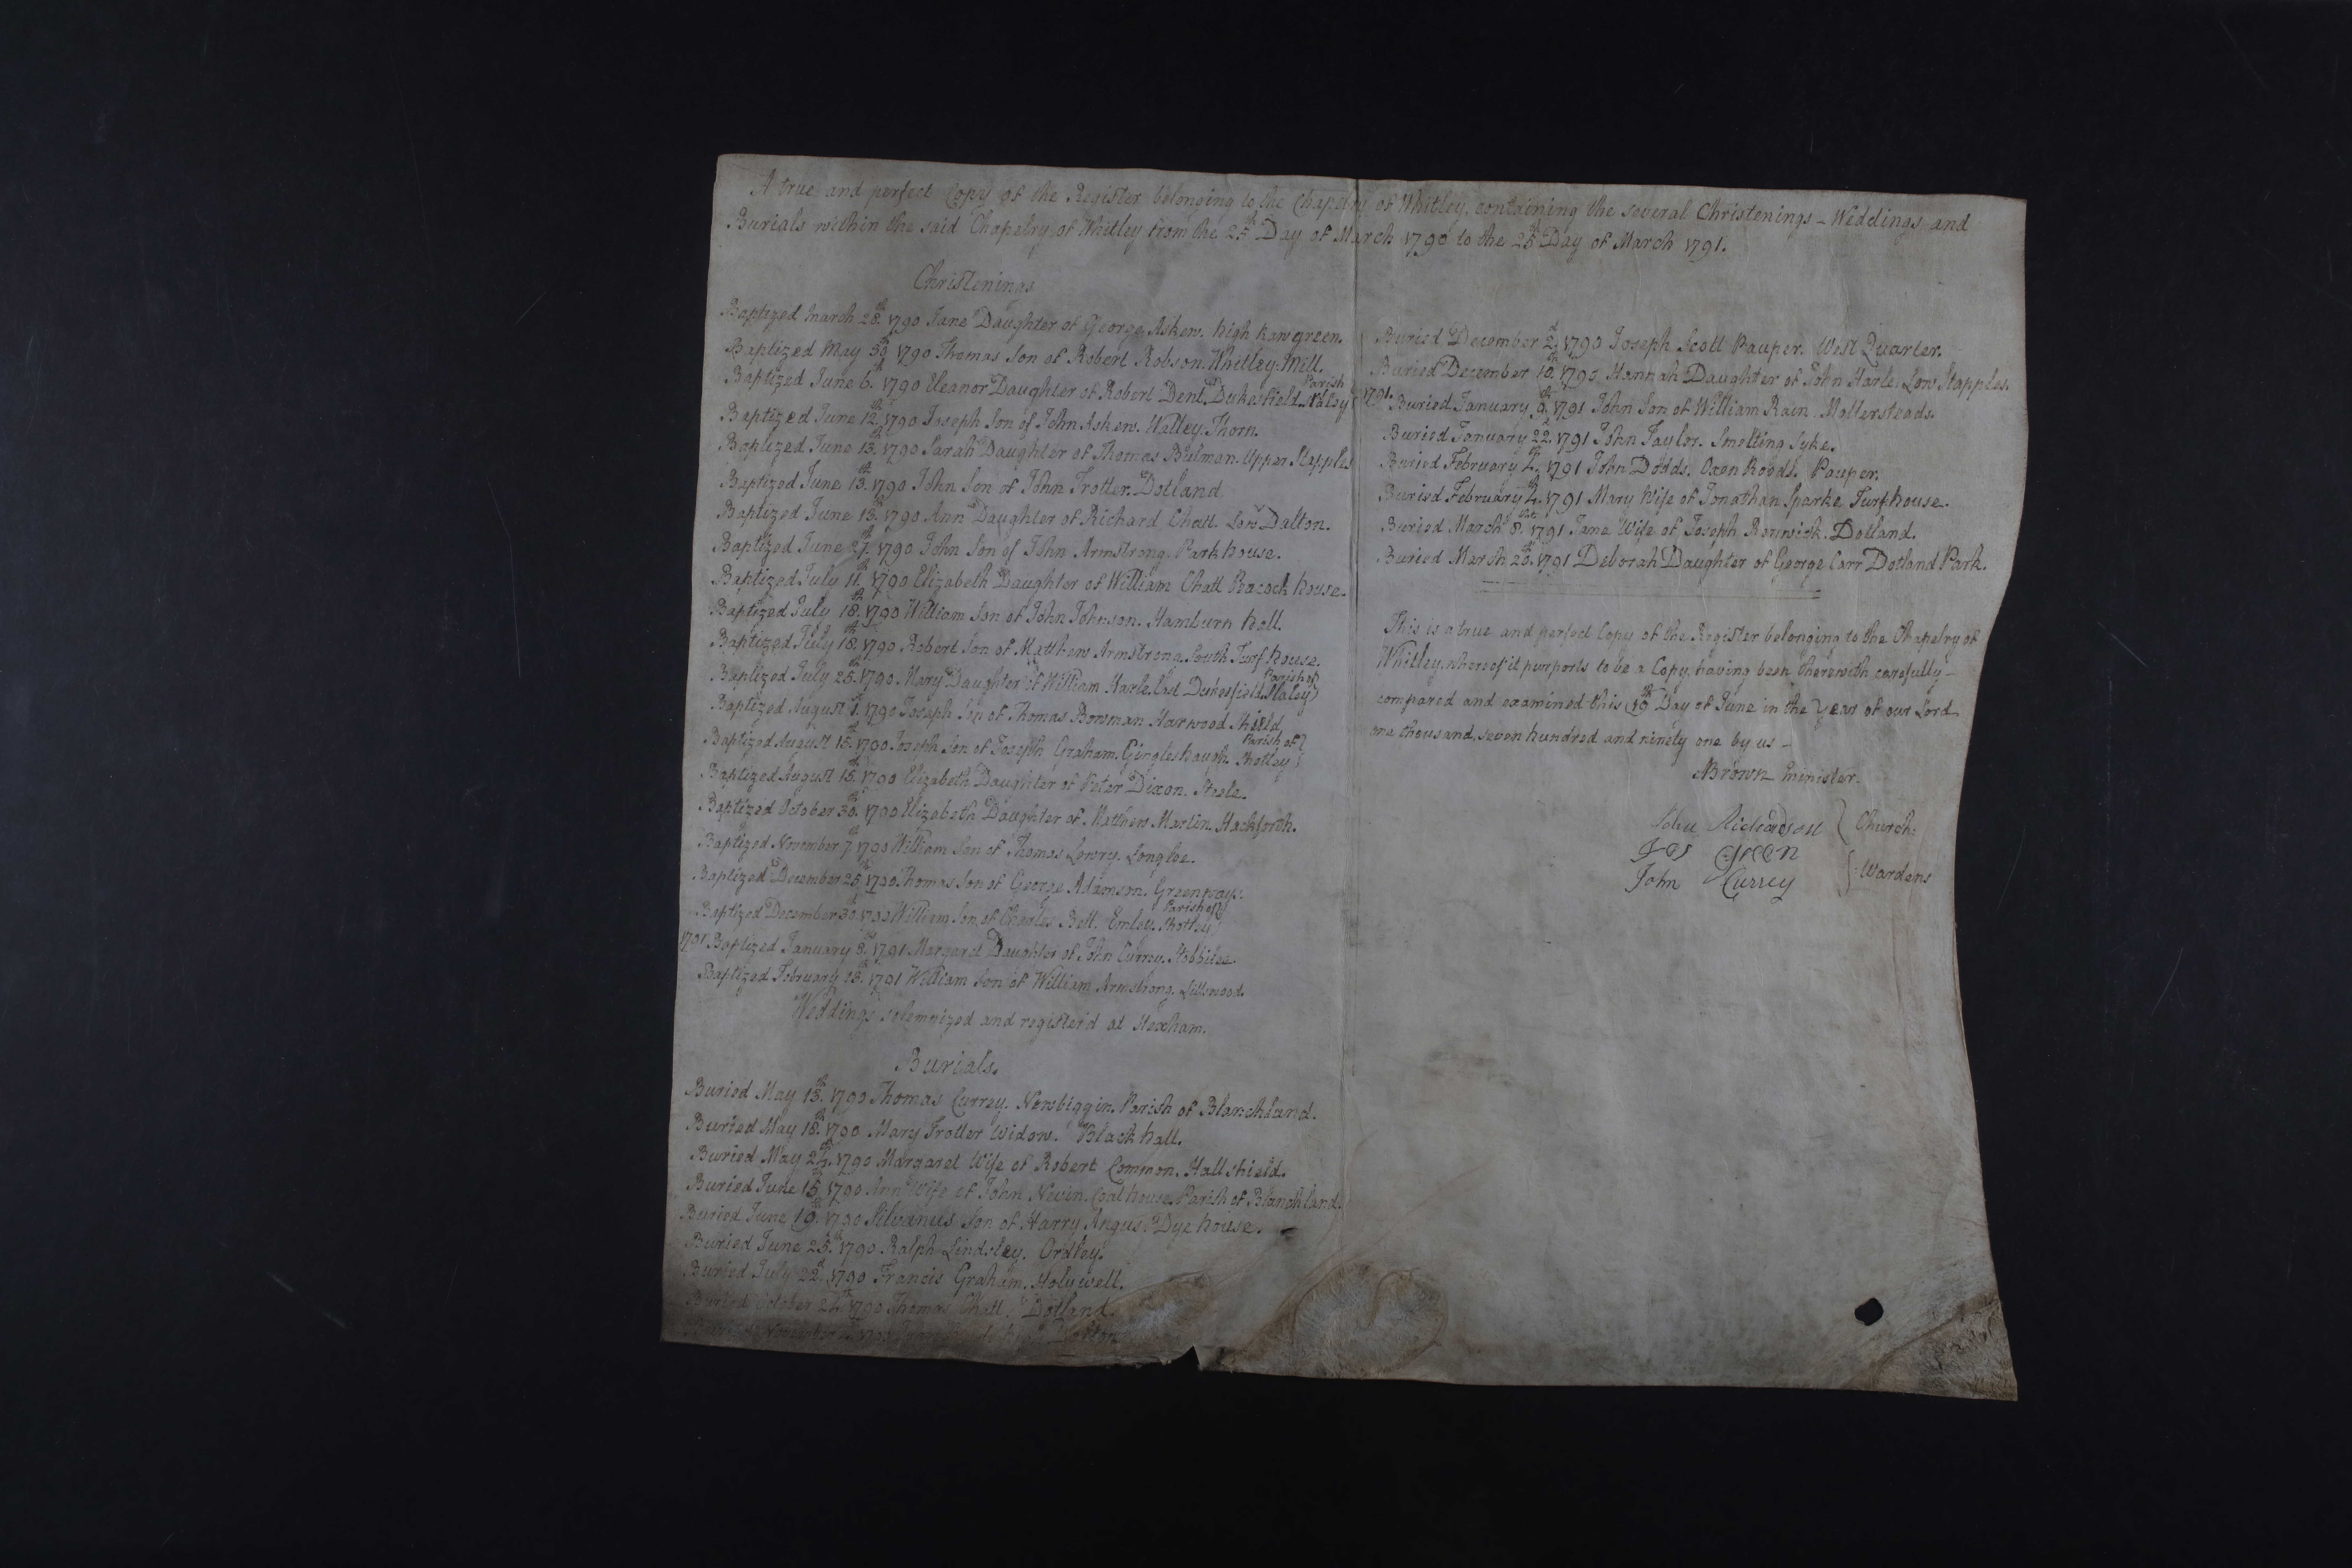 A true and perfect Copy of the Register belonging to the Chapelry of Whitley, containing the several Christenings - Weddings and
Burials within the said Chapelry of Whitley from the 25th Day of March 1790 to the 25th Day of March 1791.
Christenings
Baptized March 28th 1790 Jane Daughter of George Askew. High Rawgreen.
Baptized May 30th 1790 Thomas Son of Robert Robson. Whitley Mill.
Baptized June 6th 1790 Eleanor Daughter of Robert Dent. Dukesfield Parish Slaley
Baptized June 12th 1790 Joseph Son of John Askew. Watley Thorn.
Baptized June 13th 1790 Sarah Daughter of Thomas Bulman. Upper Stapples
Baptized June 13th 1790 John Son of John Trotter. Dotland
Baptized June 13th 1790 Ann Daughter of Richard Chatt. Low Dalton.
Baptized June 27th 1790 John Son of John Armstrong. Park house.
Baptized July 11th 1790 Elizabeth Daughter of William Chatt Peacock house.
Baptized July 18th 1790 William Son of John Johnson. Hamburn hall.
Baptized July 18th 1790 Robert Son of Matthew Armstrong. South Turf house.
Baptized July 25th 1790. Mary Daughter of William Harle. East Dukesfield Parish of Slaley
Baptized August 1st 1790 Joseph Son of Thomas Bowman Harwood Shield
Baptized August 15th 1790 Joseph Son of Joseph Graham. Gingleshaugh. Parish of Shotley
Baptized August 15th 1790 Elizabeth Daughter of Peter Dixon. Steele.
Baptized October 30th 1790 Elizabeth Daughter of Matthew Martin. Hackforth.
Baptized November 7th 1790 William Son of Thomas Lowry. Longlee.
Baptized December 25th 1790 Thomas Son of George Adamson. Greenways.
Baptized December 30th 1790 William Son of Charles Bell. Emley. Parish of Shotley
1791 Baptized January 8th 1791 Margaret Daughter of John Currey. Stobbilee.
Baptized February 13th 1791 William Son of William Armstrong. Lillswood.
Weddings solemnized and register'd at Hexham.
Burials.
Buried May 13th 1790 Thomas Currey. Newbiggin. Parish of Blanchland.
Buried May 18th 1790 Mary Trotter Widow. Black hall.
Buried May 24th 1790 Margaret Wife of Robert Common. Hall shield.
Buried June 15th 1790 Ann Wife of John Nevin. Coal house. Parish of Blanchland.
Buried June 19th 1790 Silvanus Son of Harry Angus. Dye house.
Buried June 25th 1790 Ralph Lindsley. Ordley.
Buried July 22d 1790 Francis Graham. Holywell.
Buried October 24th 1790 Thomas Chatt. Dotland.
Buried November 1790
Buried December 2d 1790 Joseph Scott Pauper. West Quarter.
Buried December 10th 1790. Hannah Daughter of John Harle. Low Stapples.
1791. Buried January 9th 1791 John Son of William Rain Mollersteads.
Buried January 22d 1791 John Taylor. Smelting Syke.
Buried February 2d 1791 John Dodds. Oxen Roods. Pauper.
Buried February 4th 1791 Mary Wife of Jonathan Sparke Turf house.
Buried March 8th 1791 Jane Wife of Joseph Renwick. Dotland.
Buried March 20th 1791 Deborah Daughter of George Carr Dotland Park.
This is a true and perfect Copy of the Register belonging to the Chapelry of
Whitley, whereof it purports to be a Copy, having been therewith carefully -
compared and examined this 10th Day of June in the Year of our Lord
one thousand, seven hundred and ninety one by us -
ABrown Minister.
John Richardson
Jos Green
John Currey
Church:
Wardens